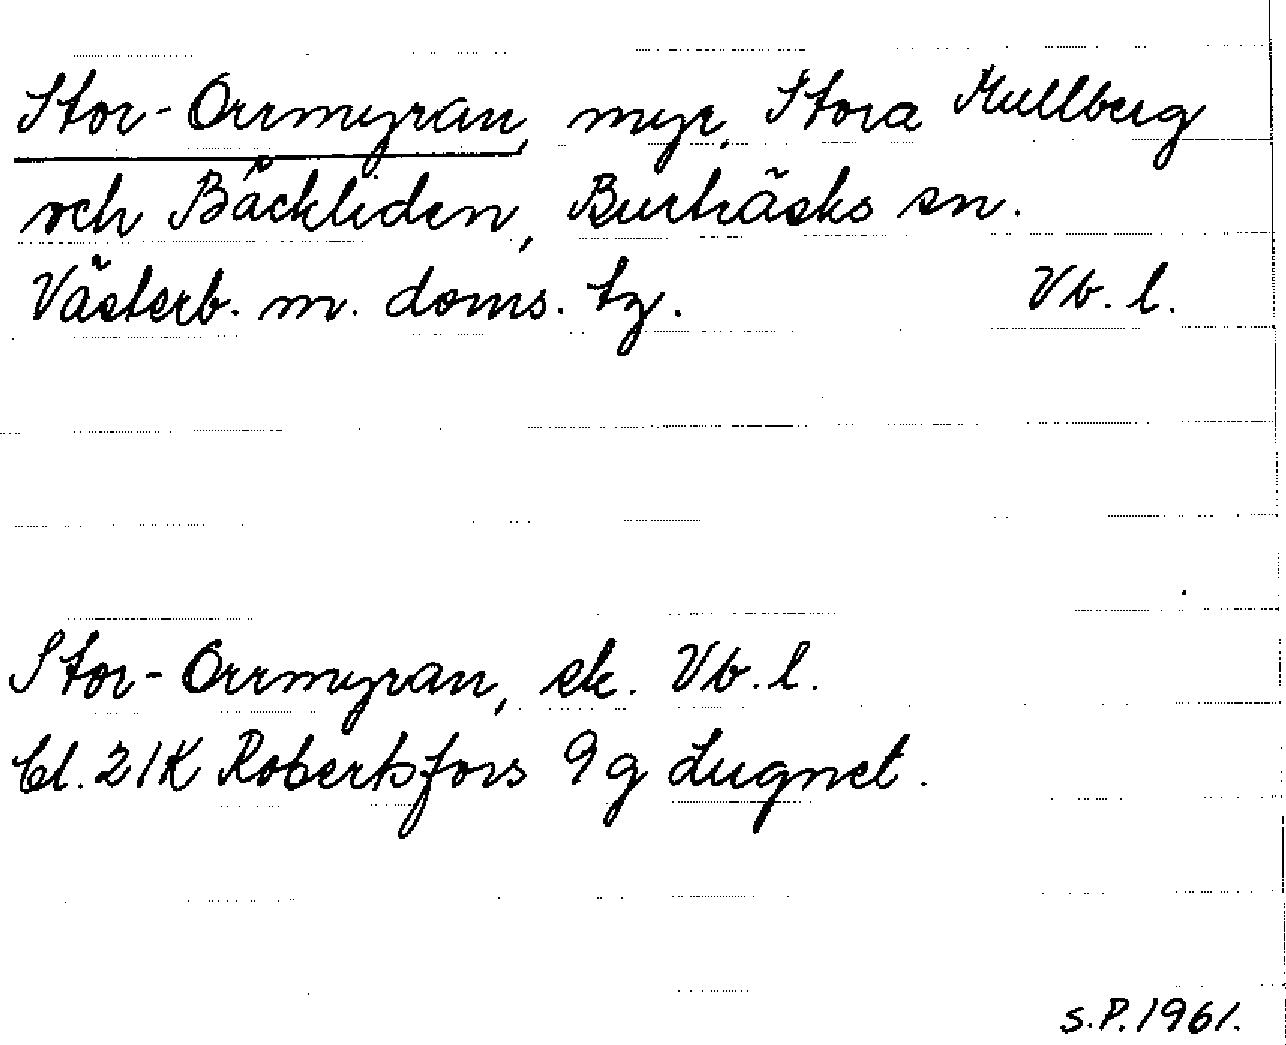 Stor-Orrmyran, myr, Stora Kullberg
och Bäckliden, Burträsks sn.
Västerb. m. doms. tg. Vb. l.
Stor-Orrmyran, ek. Vb. l.
bl. 21K Robertsfors 9g Lugnet.
S.P. 1961.